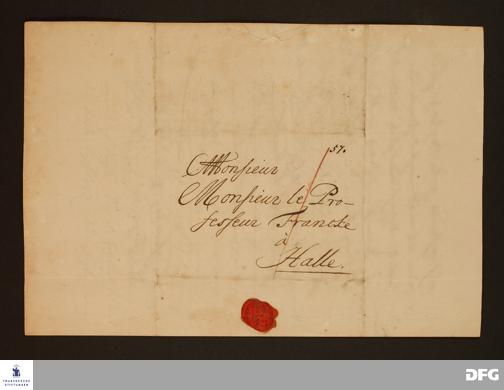 57.
Monsieur
Monsieur le Pro-
fesseur Francke
à
Halle.
FRANCKESCHE
STIFTUNGEN
DFG